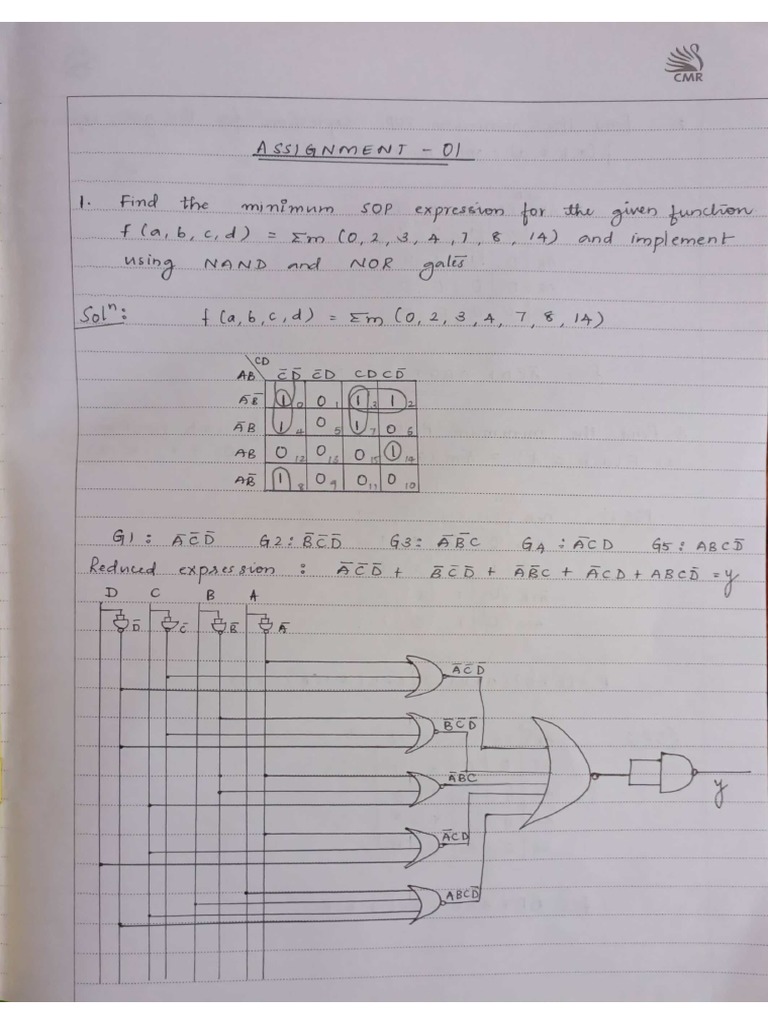 CMR
ASSIGNMENT - 01
1. Find the minimum SOP expression for the given function
f (a, b, c, d) = Σm (0, 2, 3, 4, 7, 8, 14) and implement
using NAND and NOR gates
Solⁿ: f (a, b, c, d) = Σm (0, 2, 3, 4, 7, 8, 14)
CD
AB C̅D̅ C̅D CD CD̅
A̅B̅ 1 0 0 1 1 3 1 2
A̅B 1 4 0 5 1 7 0 6
AB 0 12 0 13 0 15 1 14
AB̅ 1 8 0 9 0 11 0 10
G1 : A̅C̅D̅ G2 : B̅C̅D̅ G3 : A̅B̅C G4 : A̅CD G5 : ABCD̅
Reduced expression : A̅C̅D̅ + B̅C̅D̅ + A̅B̅C + A̅CD + ABCD̅ = y
D C B A
D̅ C̅ B̅ A̅
A̅C̅D̅
B̅C̅D̅
A̅B̅C
y
A̅CD
ABCD̅